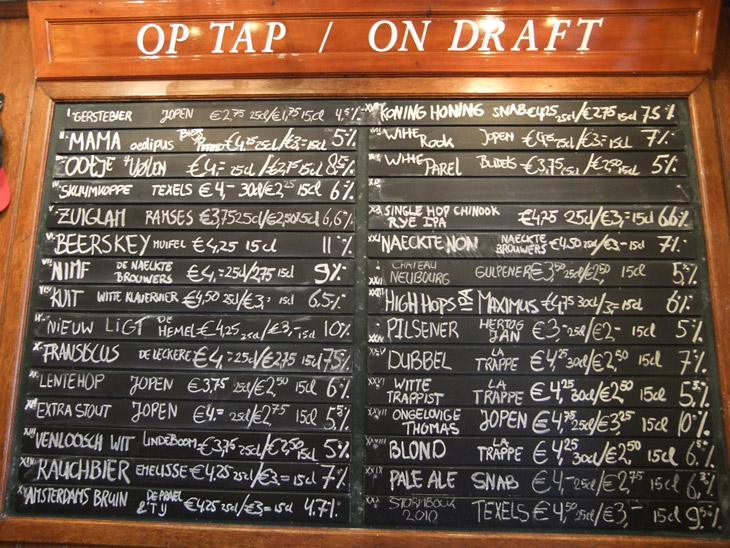 OP TAP / ON DRAFT
I GERSTEBIER JOPEN €2,75 25cl/€1,75 15cl 4,5%
II MAMA oedipus €4,25 25cl/€3,- 15cl 5%
OOTJE €4,- 25cl/€2,75 15cl 8,5%
SKUUMKOPPE TEXELS €4,- 30cl/€2,25 15cl 6%
V ZUIGLAM RAMSES €3,75 25cl/€2,50 15cl 6,6%
VI BEERSKEY MUIFEL €4,25 15cl 11%
VII NIMF DE NAECKTE BROUWERS €4,- 25cl/2,75 15cl 9%
VIII KUIT WITTE KLAVERVIER €4,50 25cl/€3,- 15cl 6.5%
IX NIEUW LIGT DE HEMEL €4,25 25cl/€3,- 15cl 10%
X FRANSISCUS DE LECKERE €4,- 25cl/€2,75 15cl 7,5%
XI LENTEHOP JOPEN €3,75 25cl/€2,50 15cl 6%
XII EXTRA STOUT JOPEN €4,- 25cl/€2,75 15cl 5,5%
XIII VENLOOSCH WIT LINDEBOOM €3,75 25cl/€2,50 15cl 5%
XIV RAUCHBIER EMELISSE €4,25 25cl/€3,- 15cl 7%
XV AMSTERDAMS BRUIN DE PRAEL & 'T IJ €4,25 25cl/€3,- 15cl 4.7%
XVI KONING HONING SNAB €4,25 25cl/€2,75 15cl 7,5%
XVII WITTE ROOK JOPEN €4,25 25cl/€3,- 15cl 7%
XVIII WITTE PAREL BUDELS €3,75 25cl/€2,50 15cl 5%
XIX
XX SINGLE HOP CHINOOK RYE IPA €4,25 25cl/€3,- 15cl 6,6%
XXI NAECKTE NON NAECKTE BROUWERS €4,50 25cl/€3,- 15cl 7%
CHATEAU NEUBOURG GULPENER €3,50 25cl/€2,50 15cl 5%
XXIII HIGH HOPS IPA MAXIMUS €4,75 30cl/3,- 15cl 6%
PILSENER HERTOG JAN €3,- 25cl/€2,- 15cl 5%
XXV DUBBEL LA TRAPPE €4,25 30cl/€2,50 15cl 7%
XXVI WITTE TRAPPIST LA TRAPPE €4,25 30cl/€2,50 15cl 5,5%
XXVII ONGELOVIGE THOMAS JOPEN €4,75 25cl/€3,25 15cl 10%
XXVIII BLOND LA TRAPPE €4,25 30cl/€2,50 15cl 6,5%
XXIX PALE ALE SNAB €4,- 25cl/€2,75 15cl
XXX STORMBOCK 2010 TEXELS €4,50 25cl/€3,- 15cl 9,5%